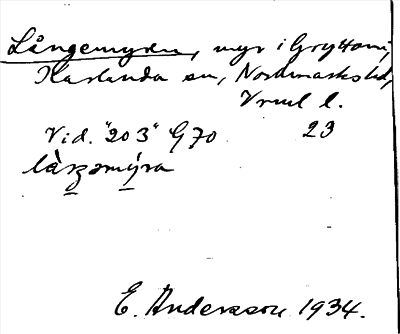 Långemyren, myr i Gryttom,
Karlanda sn, Nordmarks hd,
Vrml l.
Vid. "203" G 70 23
E. Andersson 1934.